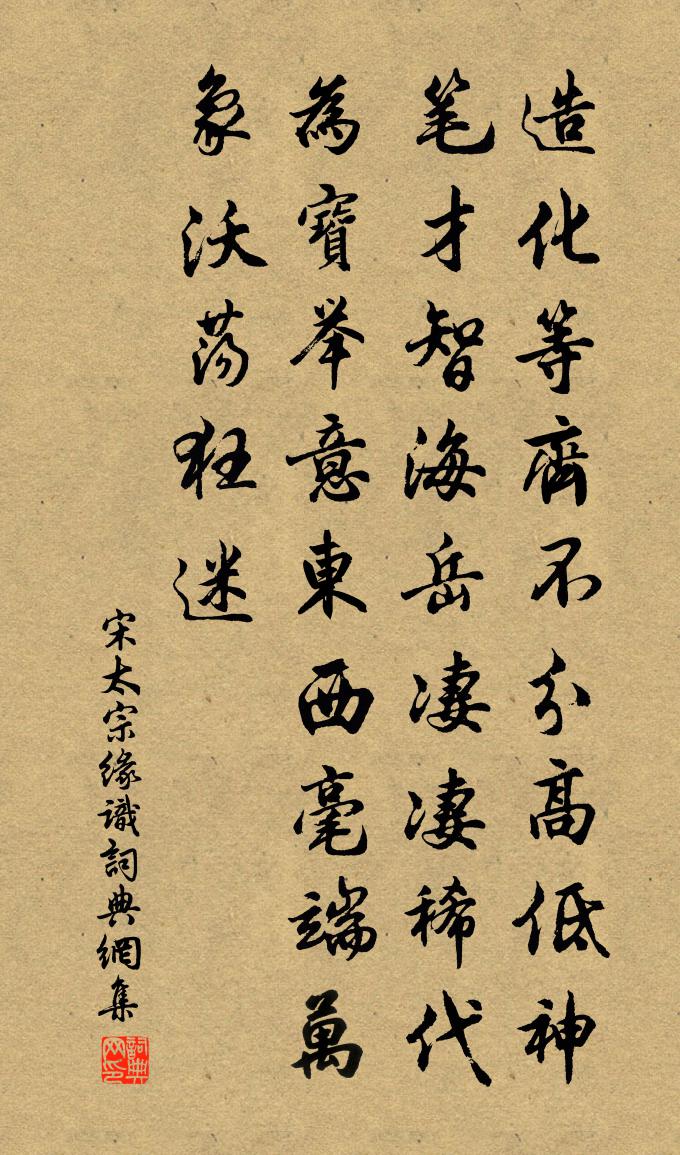 造化等齊不分高低神
笔才智海岳凄凄稀代
為寶举意東西毫端萬
象沃荡狂迷
宋太宗緣識詞典網集
詞典网印